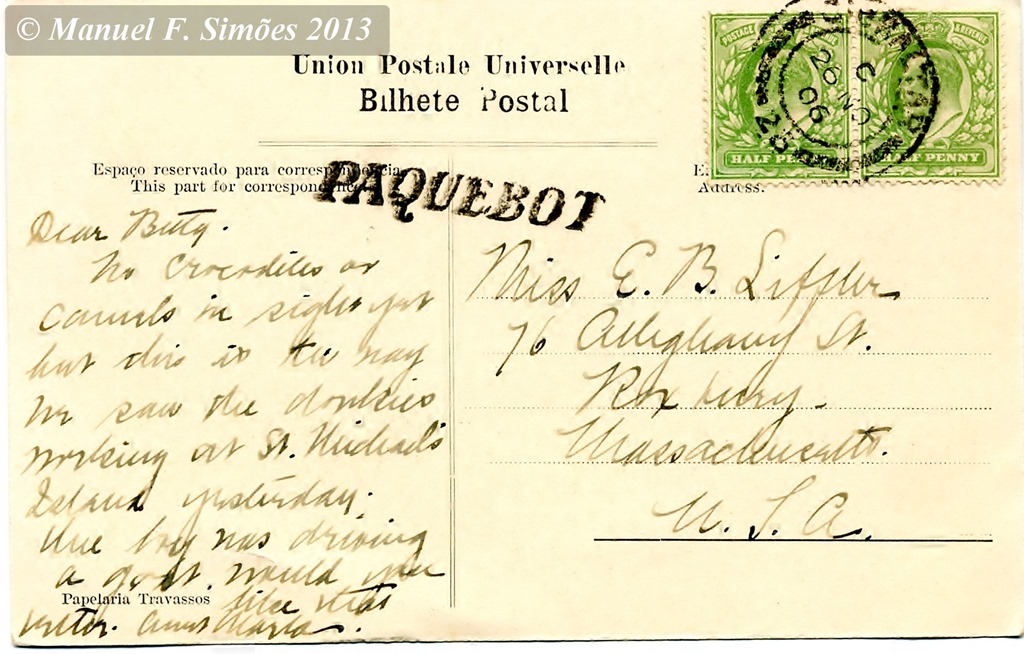 © Manuel F. Simões 2013
Union Postale Universelle
Bilhete Postal
Espaço reservado para correspondencia
This part for correspondence
Address.
PAQUEBOT
POSTAGE REVENUE
HALF PENNY
HALF PENNY
GIBRALTAR
C
26 NO
06
Dear Betty.
No Crocodiles or
Camels in sight yet
but this is the way
we saw the donkies
working at St. Michael's
Island yesterday.
One boy was driving
a goat. Would you
like that
better. Aunt Maria.
Miss E. B. Liffler
76 Alleghany St.
Roxbury.
Massachusetts.
U. S. A.
Papelaria Travassos